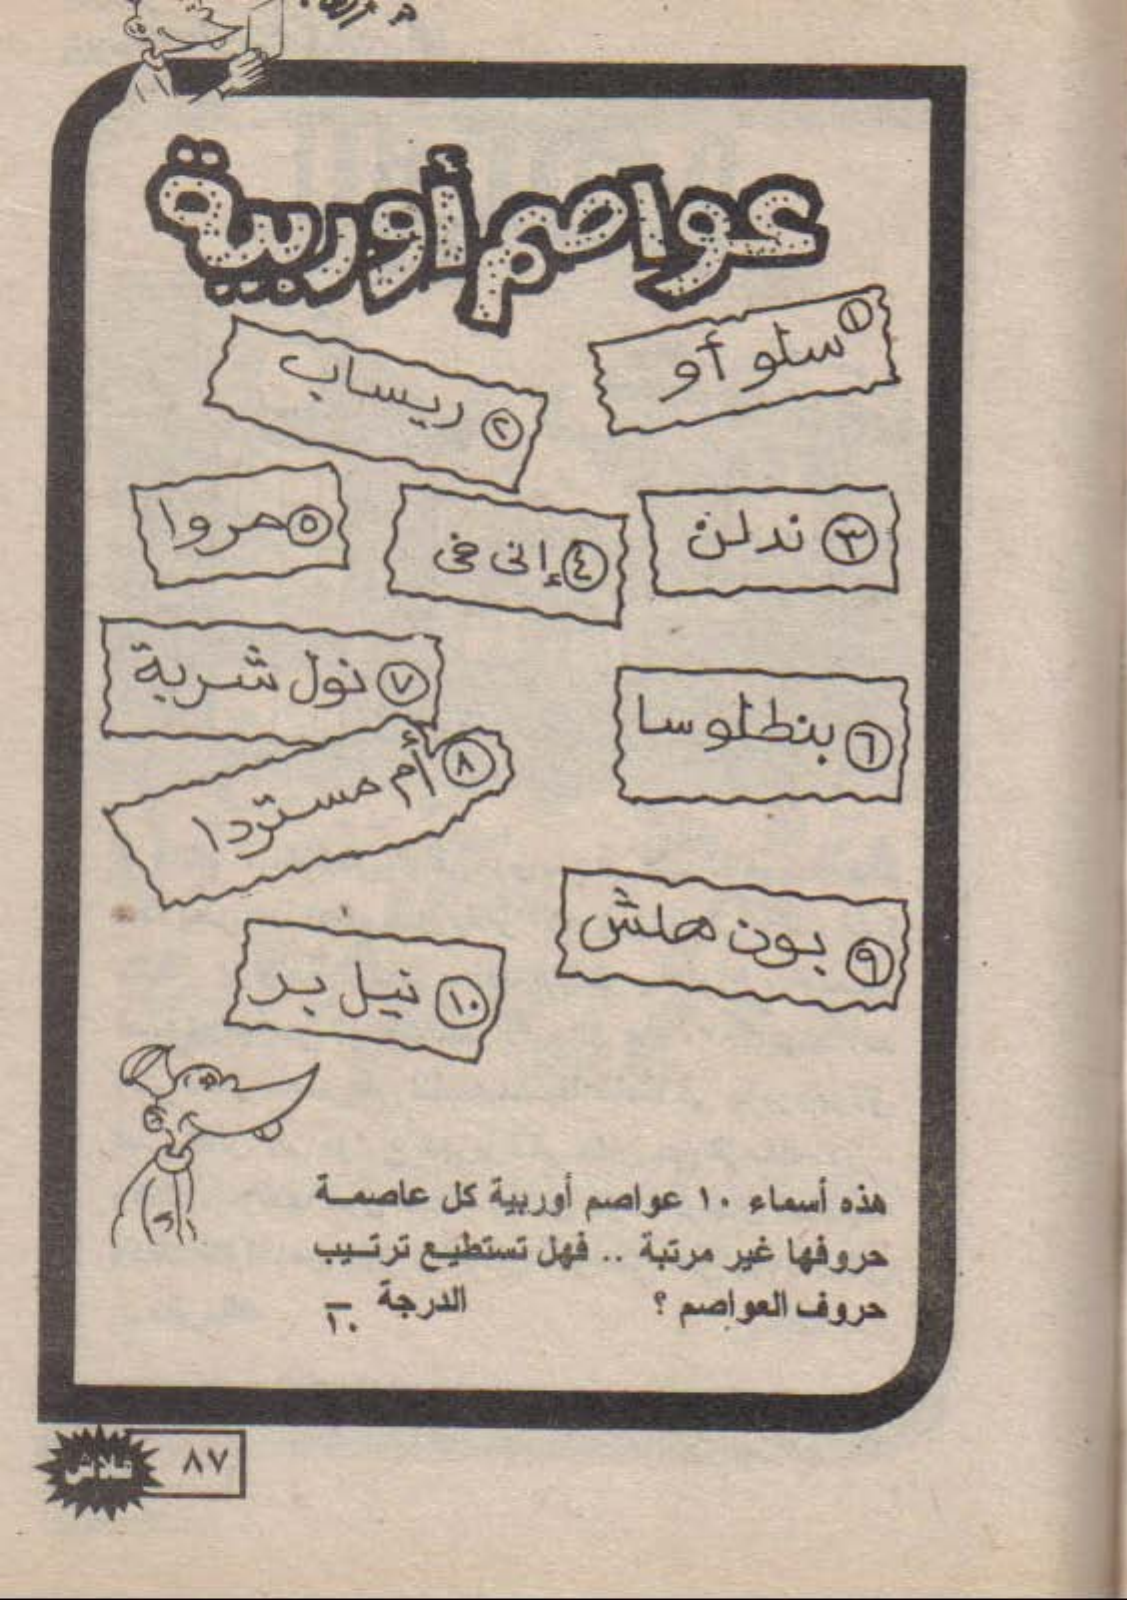 عواصم أوربية
١ سلو أو
٢ ريساب
٣ ندلن
٤ إنى فى
٥ مروا
٦ بنطلوسا
٧ نول شربة
٨ أم مستردا
٩ بون هلش
١٠ نيل بر
هذه أسماء ١٠ عواصم أوربية كل عاصمة
حروفها غير مرتبة .. فهل تستطيع ترتيب
حروف العواصم ؟ الدرجة ــ
١٠
٨٧
فلاش